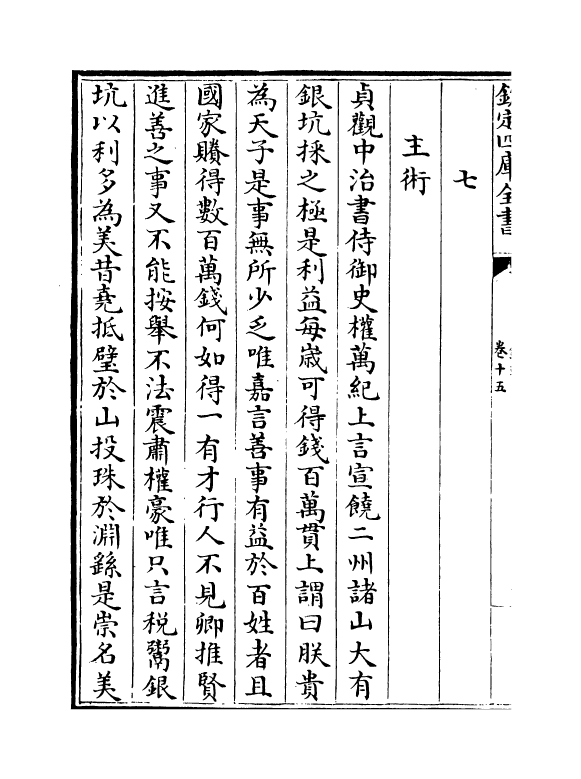 欽定四庫全書
卷十五
七
主術
貞觀中治書侍御史權萬紀上言宣饒二州諸山大有
銀坑採之極是利益每歳可得錢百萬貫上謂曰朕貴
為天子是事無所少乏唯嘉言善事有益於百姓者且
國家賸得數百萬錢何如得一有才行人不見卿推賢
進善之事又不能按舉不法震肅權豪唯只言税鬻銀
坑以利多為美昔堯抵璧於山投珠於淵繇是崇名美